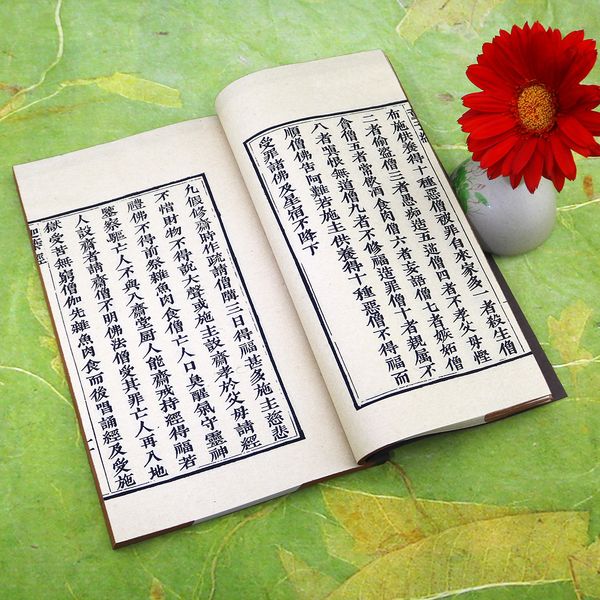 布施供養得十種惡僧破罪自來家多一者殺生僧
二者偷盜僧三者愚痴造五逆僧四者不孝父母慳
貪僧五者常飲酒食肉僧六者妄語僧七者嫉妬僧
八者嗔恨無道僧九者不修福造罪僧十者親屬不
順僧佛告阿難若施主供養得十種惡僧不得福而
受罪諸佛及星宿不降下
九假修齋時作疏請僧牌三日得福甚多施主慈悲
不惜財物不得說大聲或施主設齋孝於父母請經
禮佛不得前祭雜魚肉食僧亡人口臭壓氣守靈神
鑒察驅亡人不與入齋堂厨人能齋戒持經得福若
人設齋者請齋僧不明佛法僧受其罪亡人再入地
獄受苦無窮僧伽先雜魚肉食而後唱誦經及受施